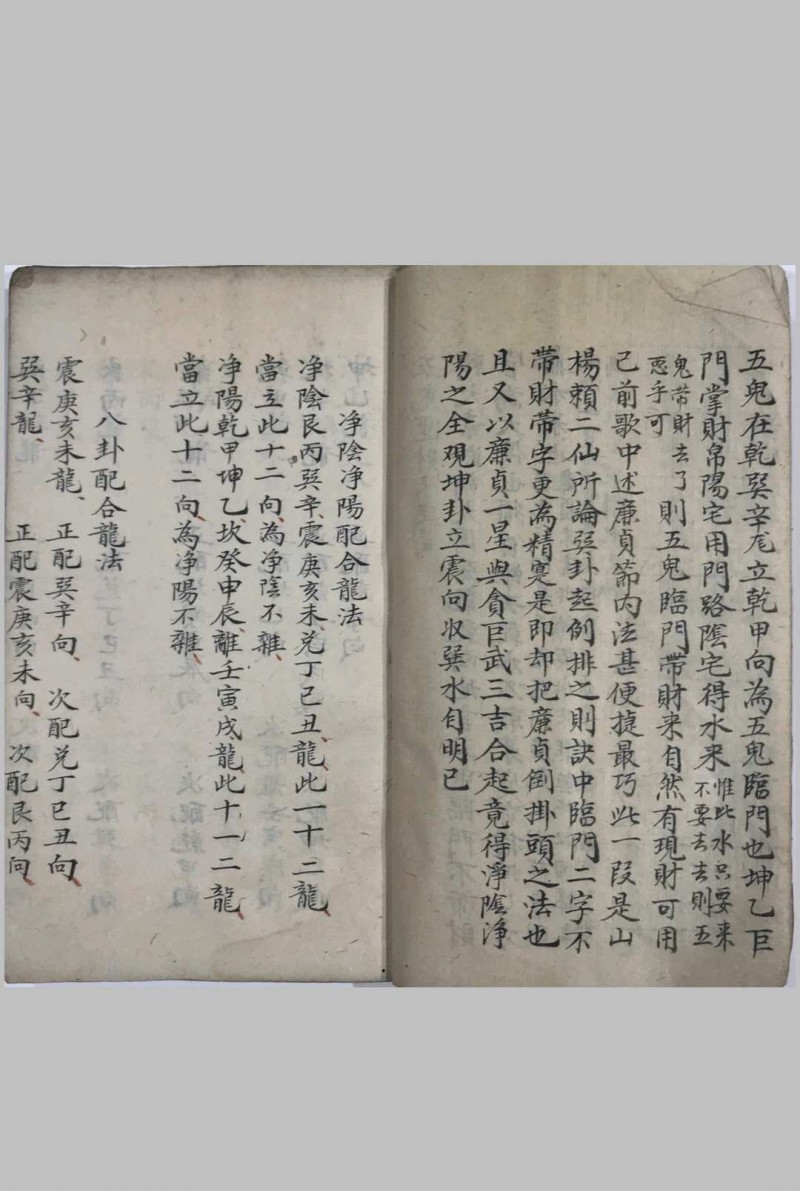 五鬼在乾巽辛龙立乾甲向為五鬼臨門也坤乙巨
門掌財帛陽宅用門路陰宅得水来惟此水只要来不要去去則五
鬼带財去了恶乎可則五鬼臨門帶財来自然有現財可用
已前歌中述廉貞節内法甚便捷最巧此一段是山
楊賴二仙所論巽卦起例排之則訣中臨門二字不
帶財帶字更為精寔是即却把廉貞倒掛頭之法也
且又以廉貞一星與貪巨武三吉合起竟得淨陰净
陽之全观坤卦立震向収巽水自明已
净陰净陽配合龍法
净陰艮丙巽辛震庚亥未兑丁巳丑龍此一十二龍
當立此十二向為净陰不雜
净陽乾甲坤乙坎癸申辰離壬寅戌龍此十一二龍
當立此十二向為净陽不雜
八卦配合龍法
震庚亥未龍 正配巽辛向 次配兑丁巳丑向
巽辛龍 正配震庚亥未向 次配艮丙向